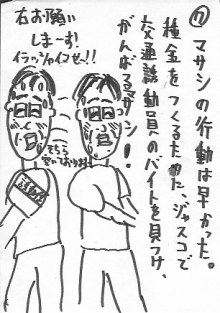 ⑦マサシの行動は早かった。
種金をつくるため、ジャスコで
交通誘動員のバイトを見つけ、
がんばるマサシ!
右お願い
しまーす!
イラッシャイコゼー!!